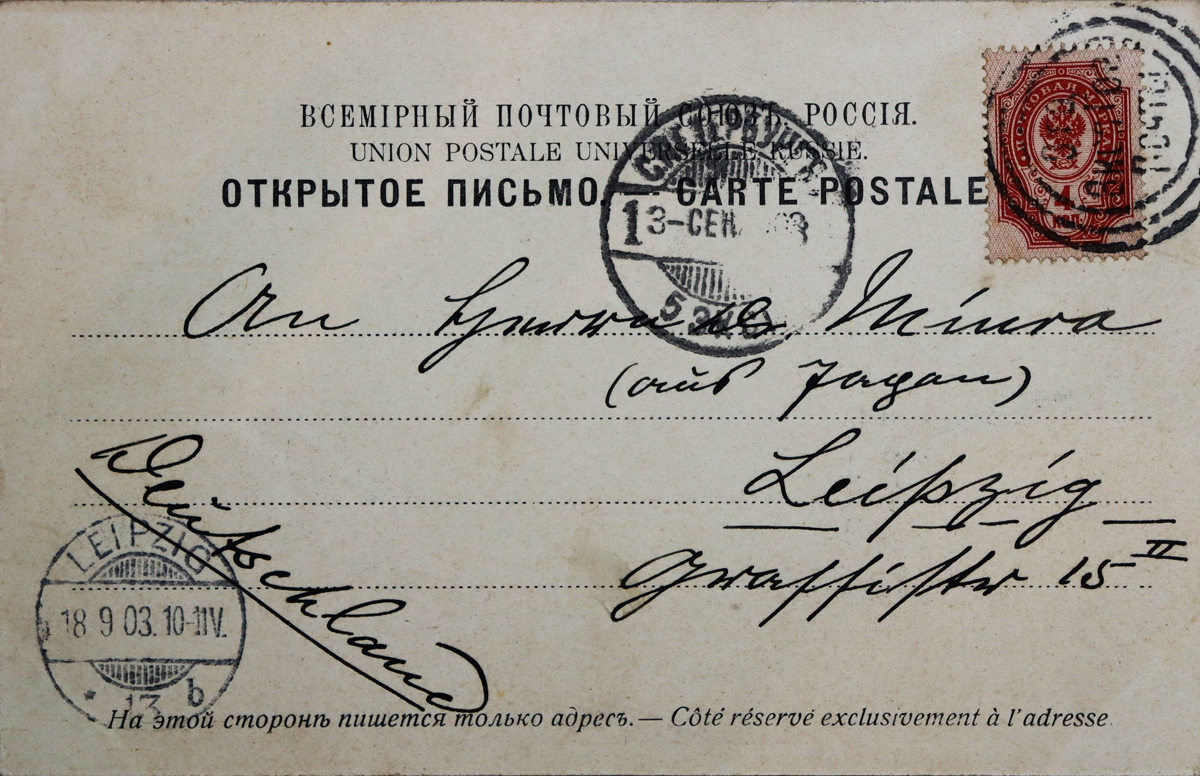 ВСЕМІРНЫЙ ПОЧТОВЫЙ СОЮЗЪ. РОССІЯ.
UNION POSTALE UNIVERSELLE RUSSIE.
ОТКРЫТОЕ ПИСЬМО. — CARTE POSTALE
ПОЧТОВАЯ МАРКА
4
КОП.
С.ПЕТЕРБУРГЪ
1 3-СЕН. 03
An Herrn Miura
(aus Japan)
Leipzig
Grassistr 15 II
Deutschland
LEIPZIG
18 9 03. 10-11V.
* 13 b
На этой сторонѣ пишется только адресъ. — Côté réservé exclusivement à l'adresse